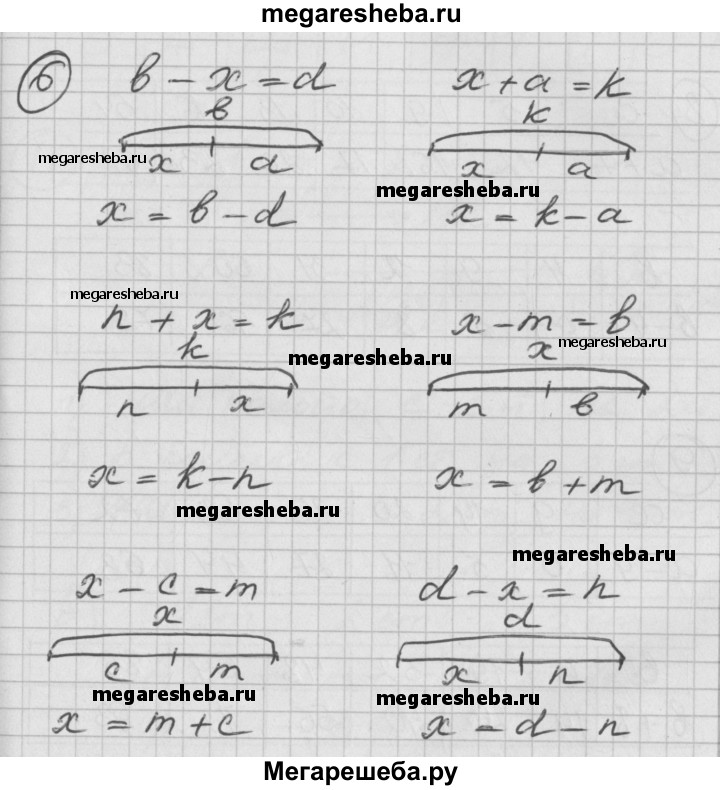 megaresheba.ru
6
в − x = d    x + a = k
в    k
megaresheba.ru
x    d    x    a
megaresheba.ru
x = в − d    x = k − a
megaresheba.ru
n + x = k    x − m = в
k    megaresheba.ru    x    megaresheba.ru
n    x    m    в
x = k − n    x = в + m
megaresheba.ru
megaresheba.ru
x − c = m    d − x = n
x    d
c    m    x    n
megaresheba.ru    megaresheba.ru
x = m + c    x = d − n
Мегарешеба.ру